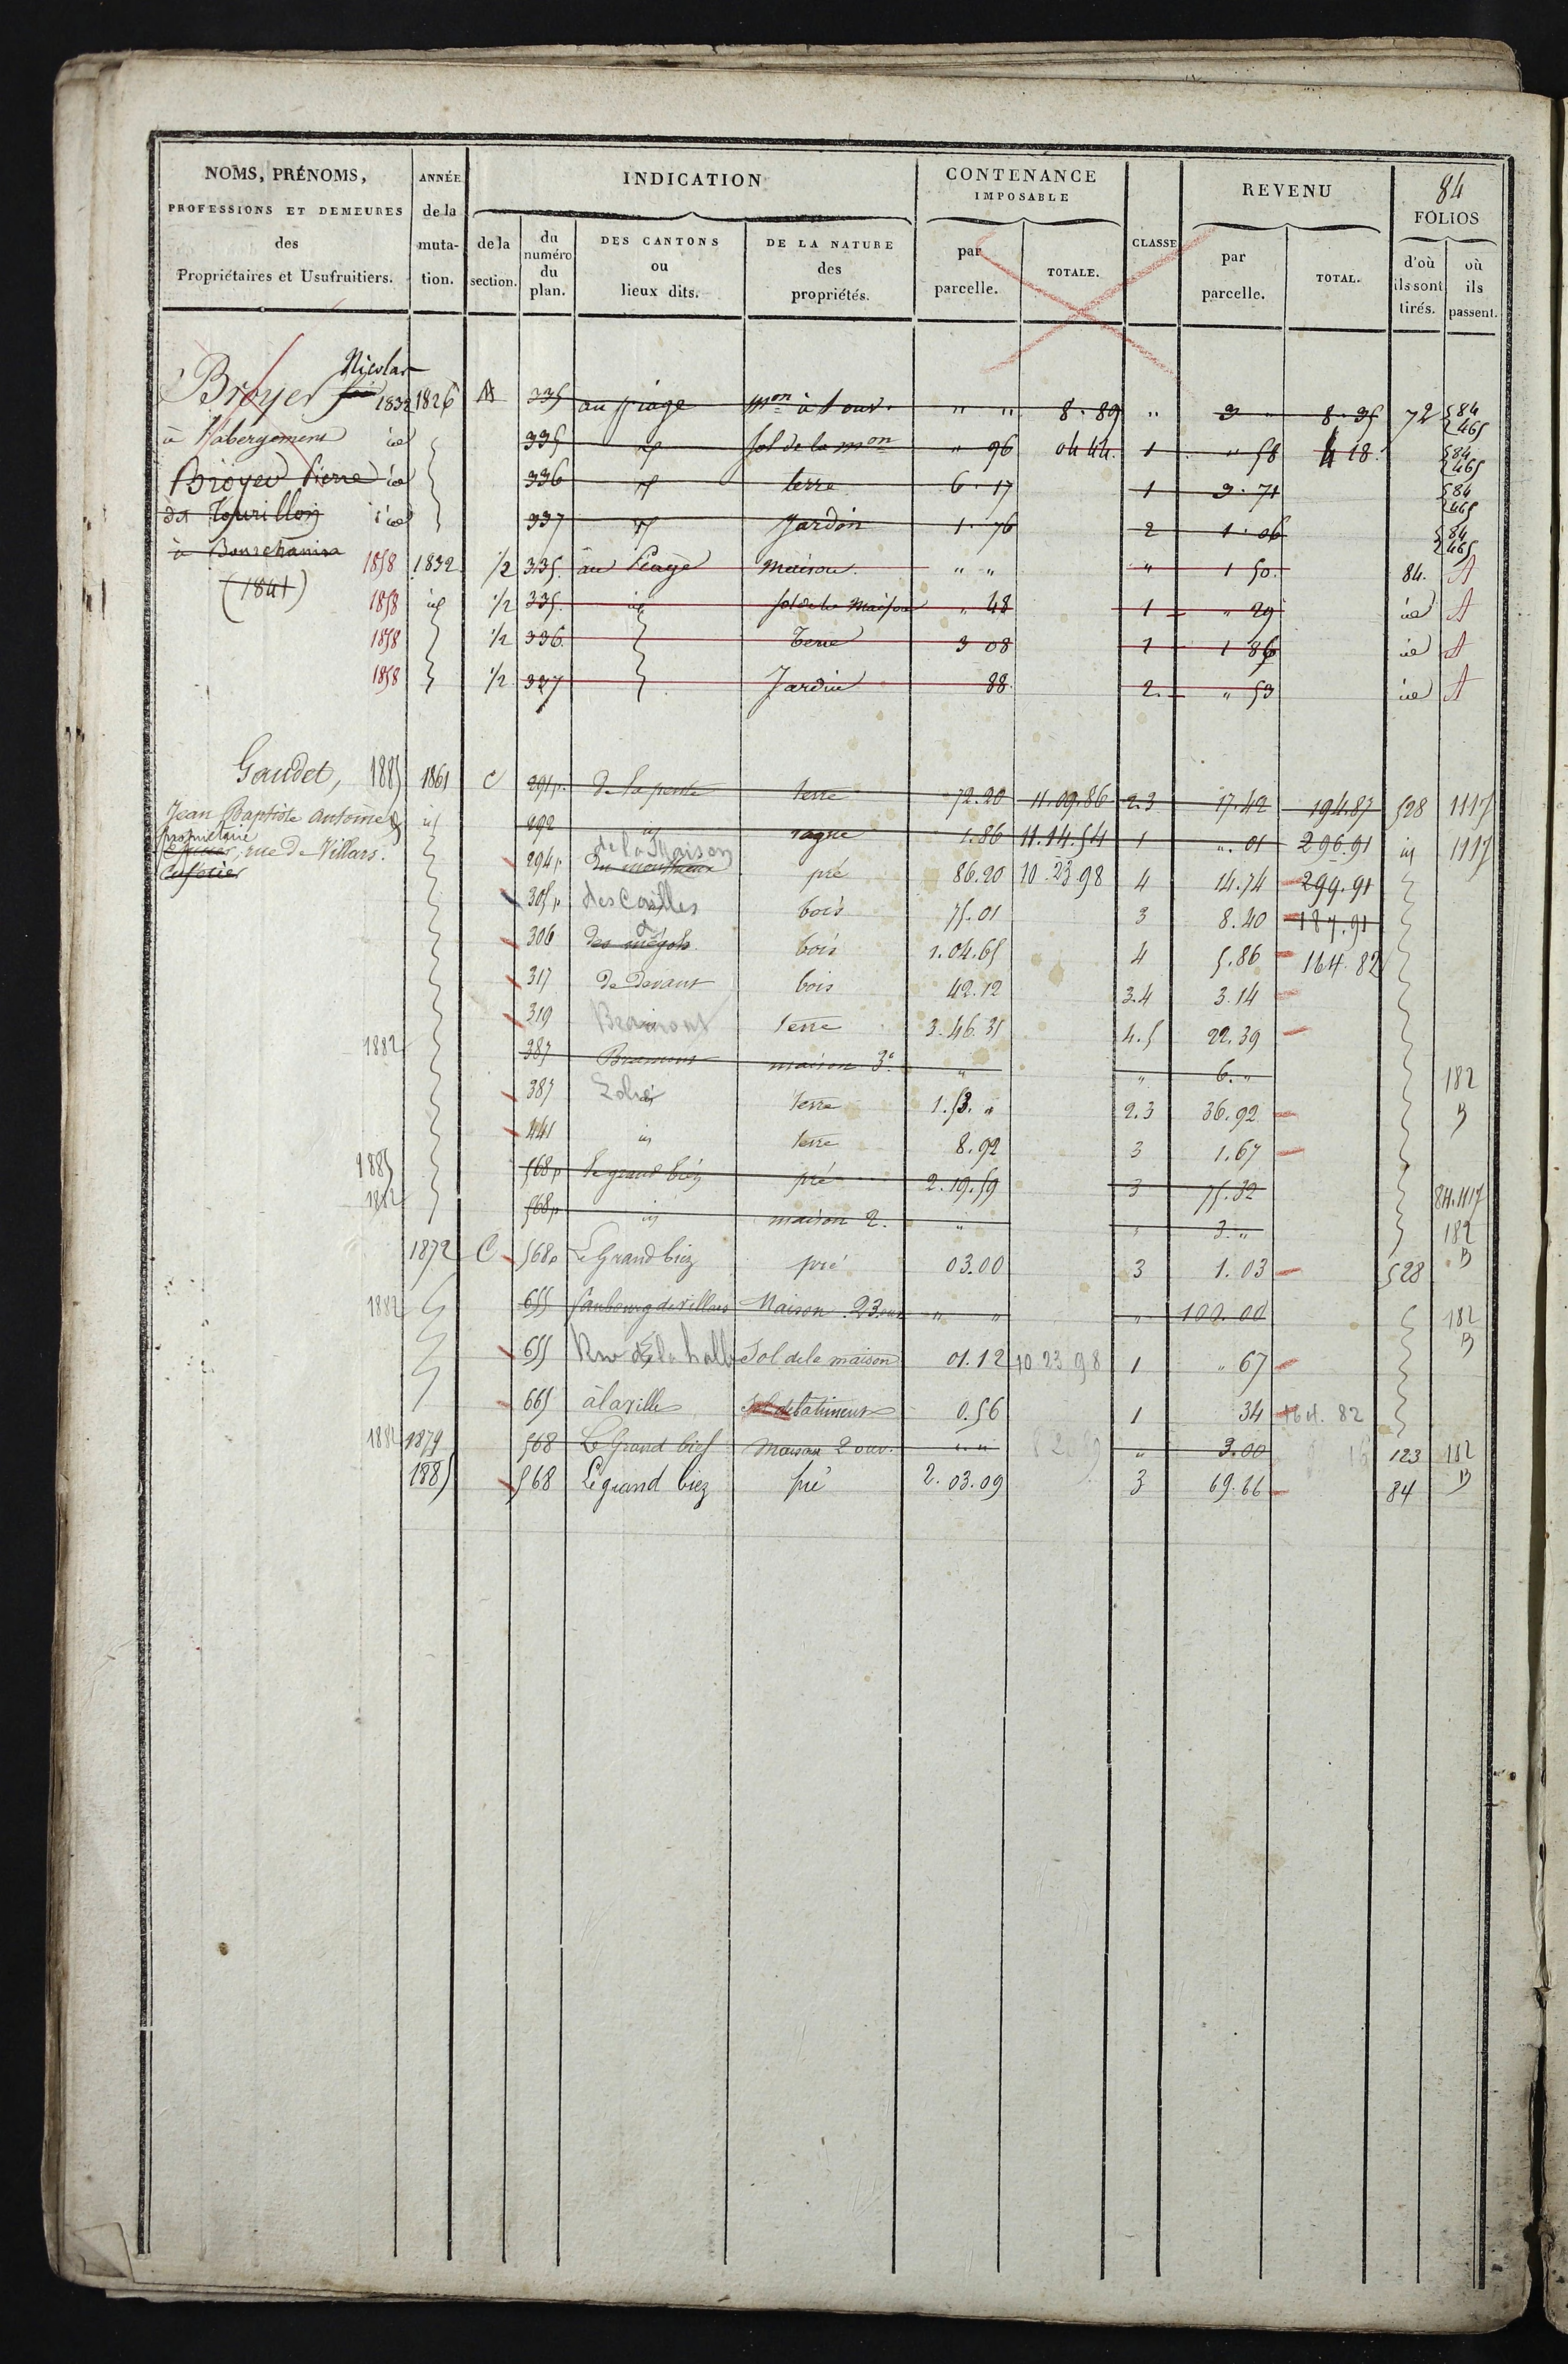 84
NOMS, PRÉNOMS, PROFESSIONS ET DEMEURES des Propriétaires et Usufruitiers.
ANNÉE de la mutation.
INDICATION
de la section.
du numéro du plan.
DES CANTONS ou lieux dits.
DE LA NATURE des propriétés.
CONTENANCE IMPOSABLE
par parcelle.
TOTALE.
CLASSE
REVENU
par parcelle.
TOTAL.
FOLIOS
d'où ils sont tirés.
où ils passent.
Nicolas
Broyer 1832 1826 A 335 au piage mon à 1 ouv. " " 8.89 " 3 " 8.35 72 84 465
à l'abergement id 335 id Sol de la mon " 96 04 44 1 " 58 4 18 84 465
Broyer Pierre id 336 id terre 6.17 1 3.71 84 465
Tourillon id 337 id Jardin 1.76 2 1.06 84 465
à 1858 1832 1/2 335. au Péage Maison " " " 1 50. 84. A
(1841) 1858 id 1/2 335. id Sol de la Maison " 48 1 " 29 id A
1858 1/2 336. Terre 3 08 1 1 86 id A
1858 1/2 337 Jardin 88. 2. " 53 id A
Gaudet, 1885 1861 C 291p. de la pente terre 72.20 11.09.86 2.3 17.42 194.87 528 1117
Jean Baptiste Antoine id 292 id vague 1.86 11.14.54 1 ". 01 296.91 id 1117
propriétaire
rue de Villars.
de la Maison
294p 86.20 10.23 98 4 14.74 299.91
pré
305p des Cailles bois 75.01 3 8.20 187.91
306 des bois 1.04.65 4 5.86 164.82
317 de devant bois 42.12 3.4 3.14
319 Bramont terre 3.46.35 4.5 22.39
1882 387 Bramont maison 3e " " 6. " 182 B
387 terre 1.53. " 2.3 36.92
441 id terre 8.92 3 1.67
1885 568p le grand biez pré 2.19.59 3 75.32 84.1117
1882 568p id maison 2. " " 3. " 182 B
1872 C 568p Le Grand biez pré 03.00 3 1.03 528
1882 655 faubourg de villars Maison 23 ouv " " " 100.00 182 B
655 Rue de la halle Sol de la maison 01.12 10 23 98 1 " 67
665 à la ville Sol de batiment 0.56 1 34 164.82
1882 1879 568 Le Grand bief Maison 2 ouv. " " " 3.00 123 182 B
1885 568 Le grand biez pré 2.03.09 3 69.66 84